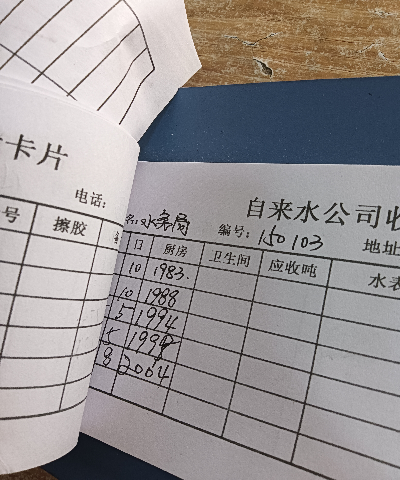 卡片
电话:
号 擦胶
自来水公司收
名: 水务局 编号: 150103 地址
日 厨房 卫生间 应收吨 水表
10 1983.
10 1988
5 1994
5 1998
8 2004